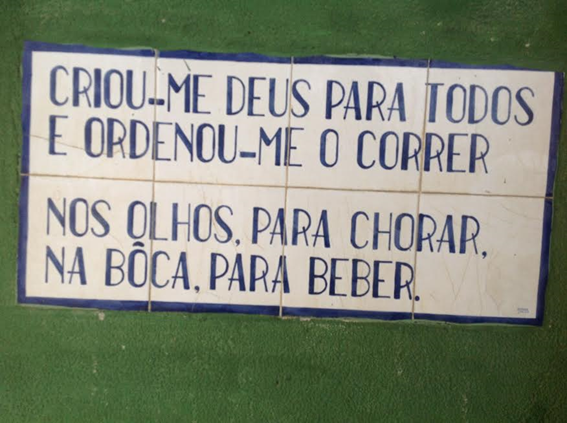 CRIOU-ME DEUS PARA TODOS
E ORDENOU-ME O CORRER
NOS OLHOS, PARA CHORAR,
NA BÔCA, PARA BEBER.